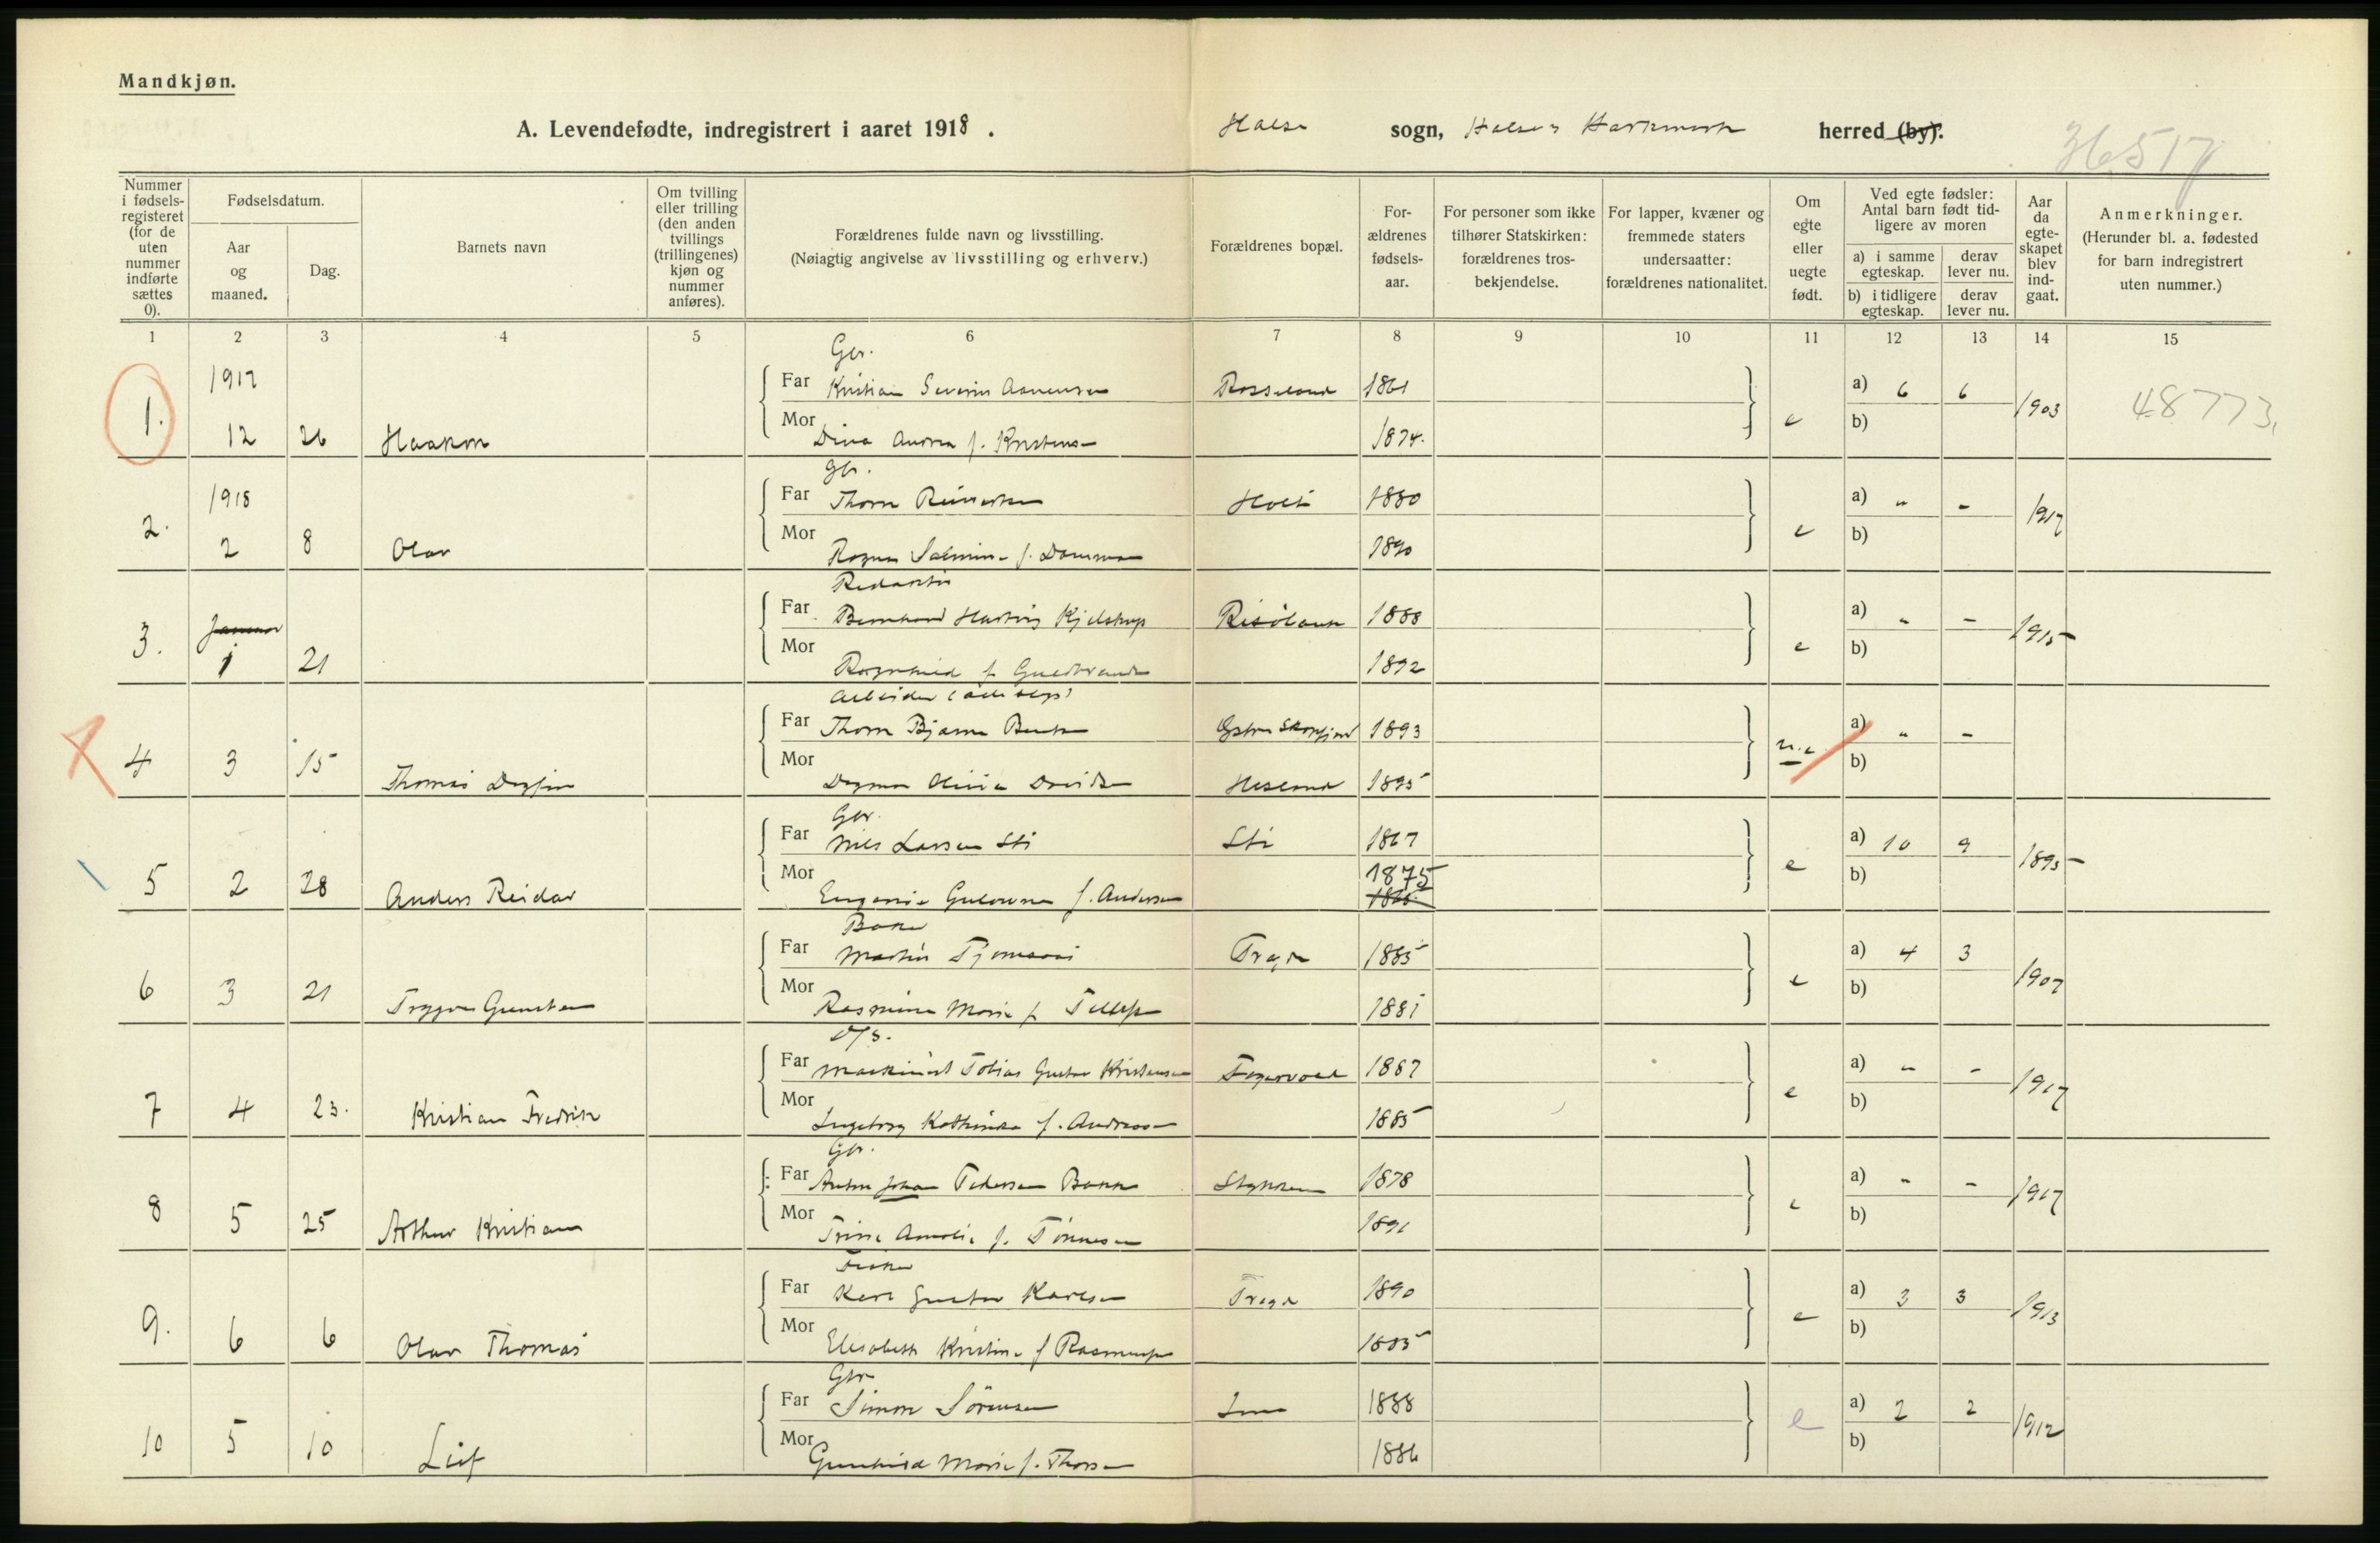 Mandkjøn.
A. Levendefødte, indregistrert i aaret 1918. Halse sogn, Halse & Harkmark herred (by).
36517
Nummer i fødselsregisteret (for de uten nummer indførte sættes 0).
Fødselsdatum.
Aar og maaned.
Dag.
Barnets navn
Om tvilling eller trilling (den anden tvillings (trillingenes) kjøn og nummer anføres).
Forældrenes fulde navn og livsstilling.
(Nøiagtig angivelse av livsstilling og erhverv.)
Forældrenes bopæl.
Forældrenes fødselsaar.
For personer som ikke tilhører Statskirken: forældrenes trosbekjendelse.
For lapper, kvæner og fremmede staters undersaatter: forældrenes nationalitet.
Om egte eller uegte født.
Ved egte fødsler: Antal barn født tidligere av moren
a) i samme egteskap.
derav lever nu.
b) i tidligere egteskap.
derav lever nu.
Aar da egteskapet blev indgaat.
Anmerkninger.
(Herunder bl. a. fødested for barn indregistrert uten nummer.)
1 2 3 4 5 6 7 8 9 10 11 12 13 14 15
Gbr.
1917 Far Kristian Severin Aanensen Rosseland 1861 a) 6 6
1. 12 26 Haakon Mor Dina Andrea f. Kristens 1874. e b) 1903 48773
Gbr.
1918 Far Thom Reinertsen Holt 1880 a) " -
2. 2 8 Olav Mor Ragna f. 1890 e b) 1917
Redaktør
Januar Far Bernhard Hartvig Kjelstrup Risøbank 1888 a) " -
3. 1 21 Mor Ragnhild f. Guldbrands 1892 e b) 1915
Arbeider
Far Thom Bjarne Bentsen Skogsfjord 1893 a) " -
4 3 15 Thomas Dagfin Mor Dagmar Davidsen 1895 u.e b)
Gbr.
Far Nils Larsen Sti Sti 1867 a) 10 9
5 2 28 Anders Reidar Mor Eugenie f. Andersen 1875 1865 e b) 1895
Far Martin Tregde 1885 a) 4 3
6 3 21 Trygve Mor Rasmine Marie f. Tellefs 1881 e b) 1907
Far Maskinist Tobias Gustav Kristensen 1887 a) " -
7 4 23. Kristian Fredrik Mor Ingeborg Kathinka f. Andreassen 1885 e b) 1917
Gbr.
Far Anton Johan Pedersen 1878 a) " -
8 5 25 Arthur Kristian Mor Trine Amalie f. Tønnesen 1891 e b) 1917
Fisker
Far Karl Gustav Karlsen Tregde 1890 a) 3 3
9. 6 6 Olav Thomas Mor Elisabeth Kristine f. Rasmuss 1885 e b) 1913
Gbr
Far Simon Sørensen 1888 a) 2 2
10 5 10 Leif Mor Gunhild Marie f. Thorsen 1886 e b) 1912